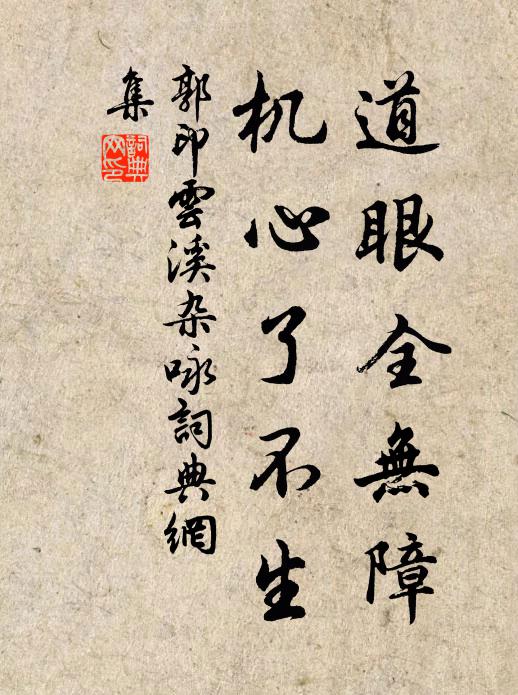 道眼全無障
机心了不生
郭印雲溪杂咏詞典網
集
詞典
网印